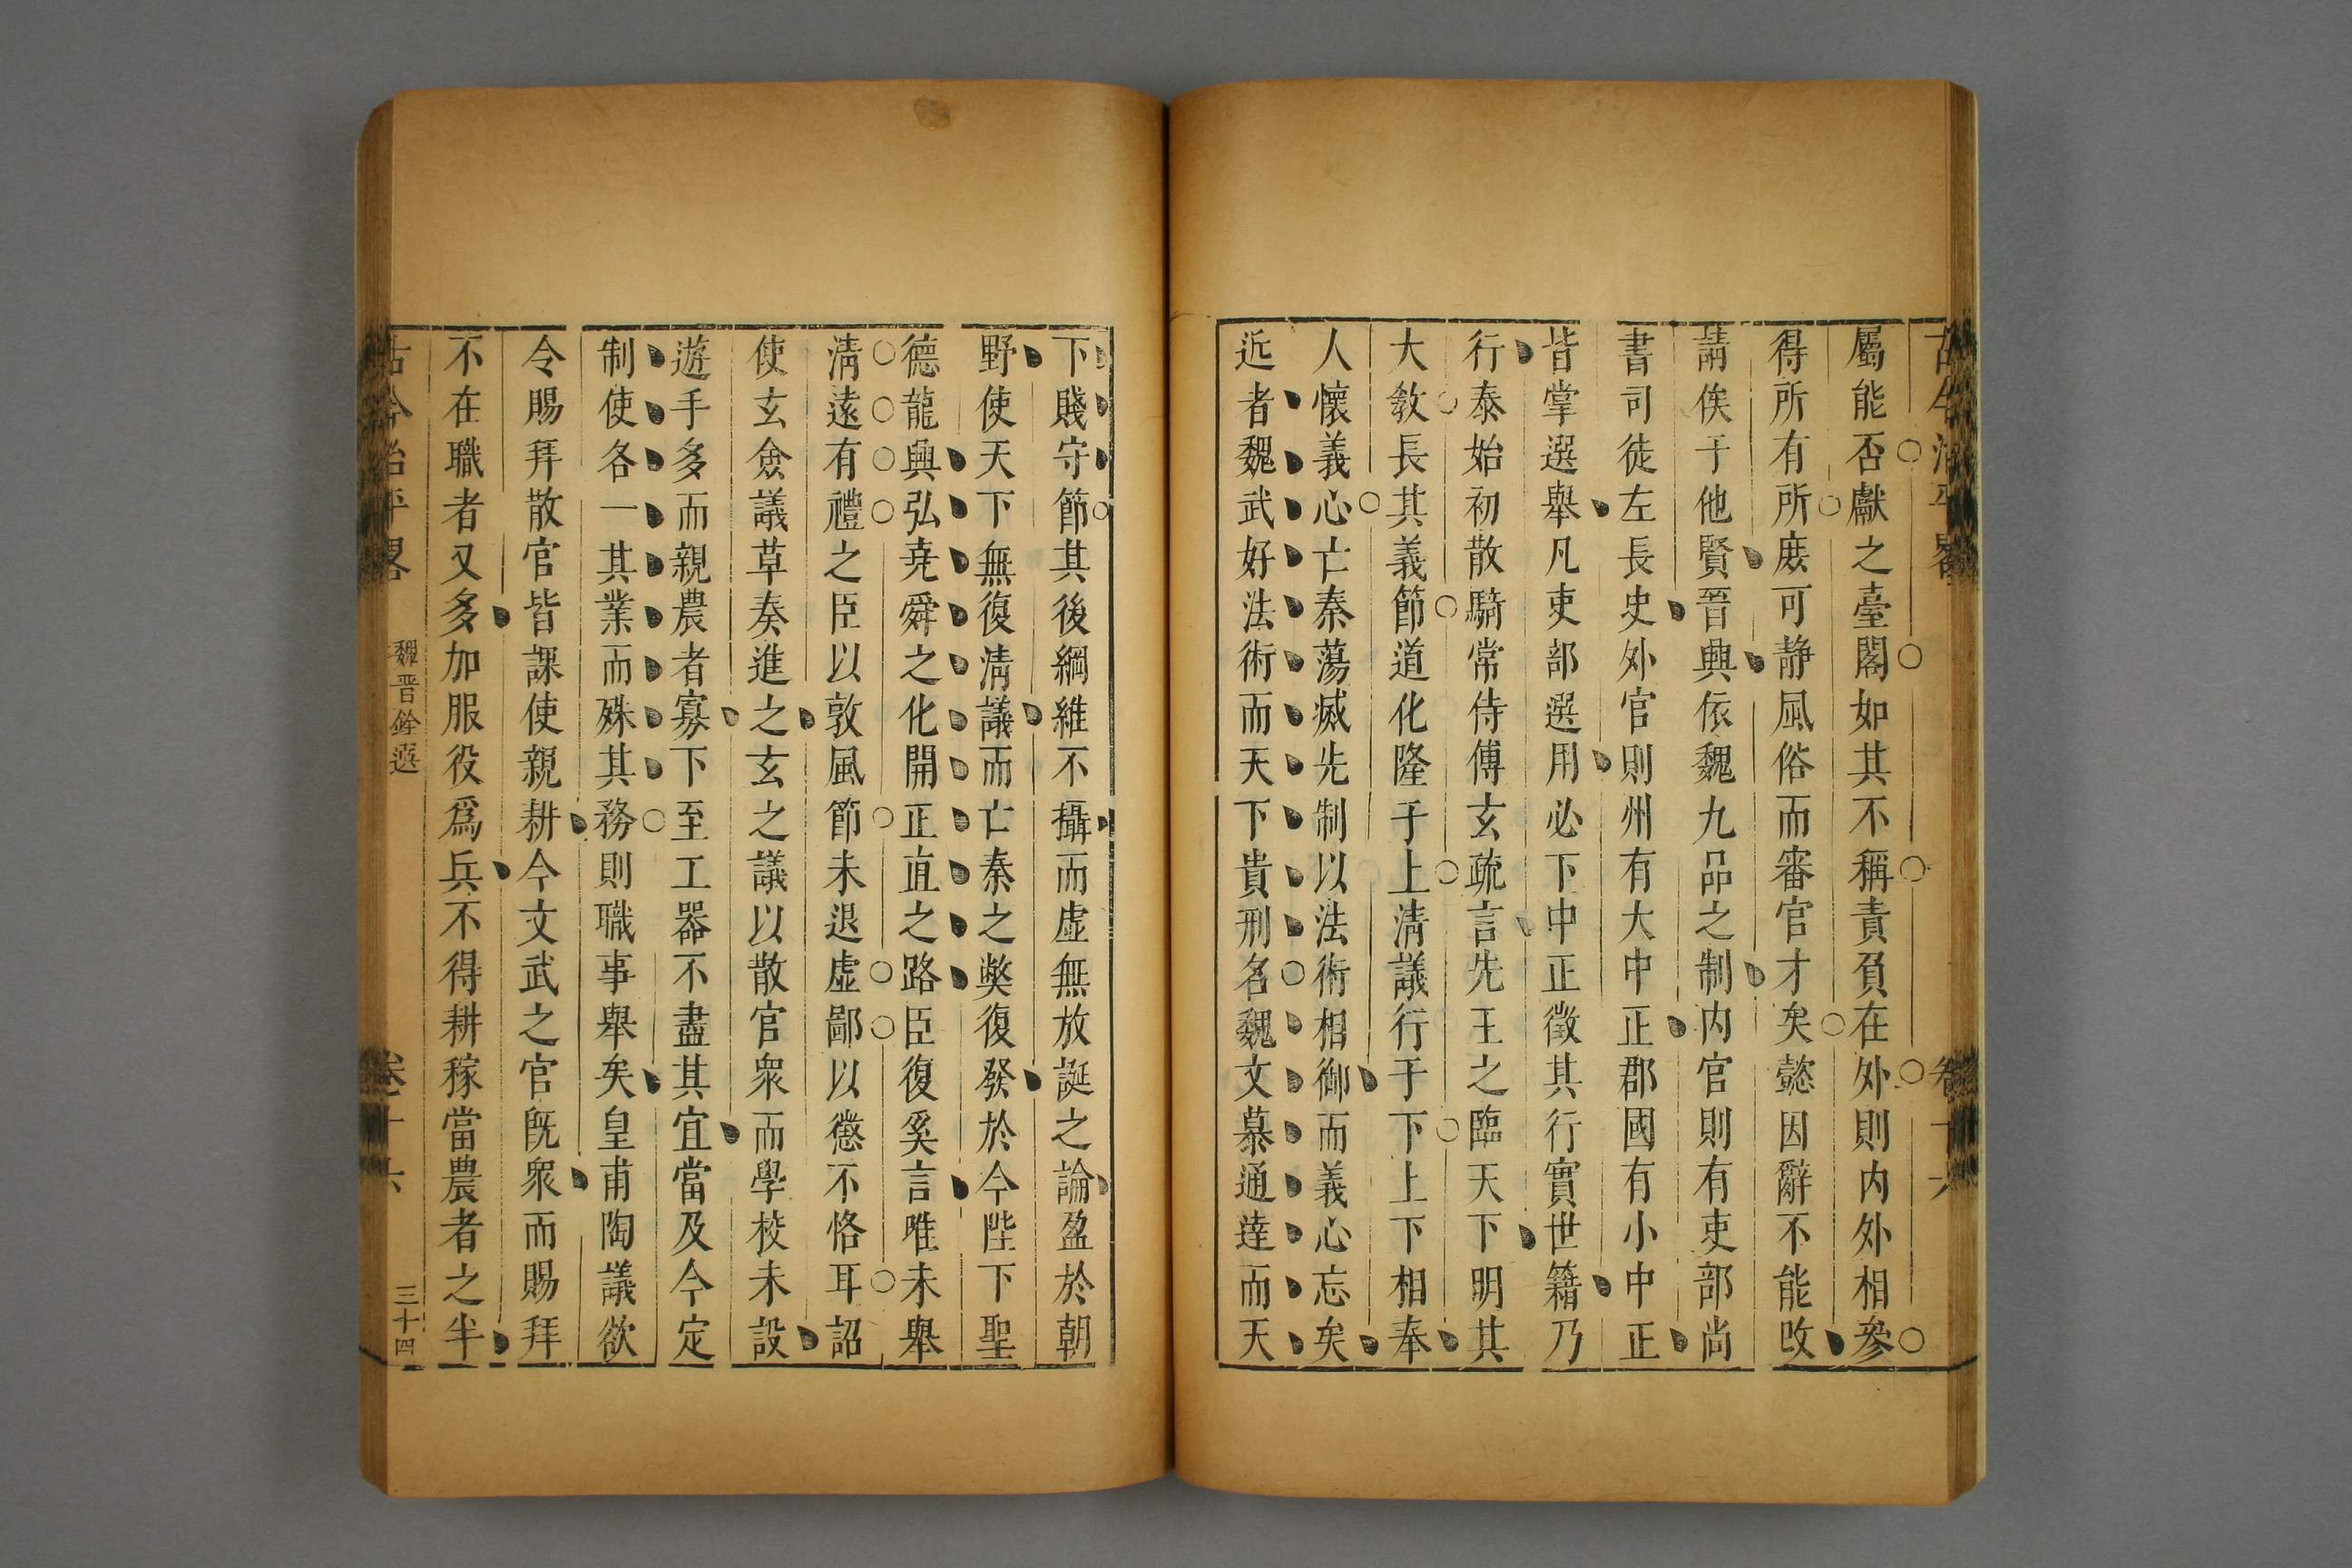 古今治平畧 卷十六
屬能否獻之臺閣如其不稱責負在外則内外相參
得所有所庻可静風俗而審官才矣懿因辭不能改
請俟于他賢晉興依魏九品之制内官則有吏部尚
書司徒左長史外官則州有大中正郡國有小中正
皆掌選舉凡吏部選用必下中正徵其行實世籍乃
行泰始初散騎常侍傅玄疏言先王之臨天下明其
大敎長其義節道化隆于上清議行于下上下相奉
人懷義心亡秦蕩滅先制以法術相御而義心忘矣
近者魏武好法術而天下貴刑名魏文慕通達而天
下賤守節其後綱維不攝而虚無放誕之論盈於朝
野使天下無復清議而亡秦之獘復發於今陛下聖
德龍興弘堯舜之化開正直之路臣復奚言唯未舉
清遠有禮之臣以敦風節未退虚鄙以懲不恪耳詔
使玄僉議草奏進之玄之議以散官衆而學校未設
遊手多而親農者寡下至工器不盡其宜當及今定
制使各一其業而殊其務則職事舉矣皇甫陶議欲
令賜拜散官皆課使親耕今文武之官旣衆而賜拜
不在職者又多加服役爲兵不得耕稼當農者之半
古今治平畧 魏晋銓選 卷十六 三十四